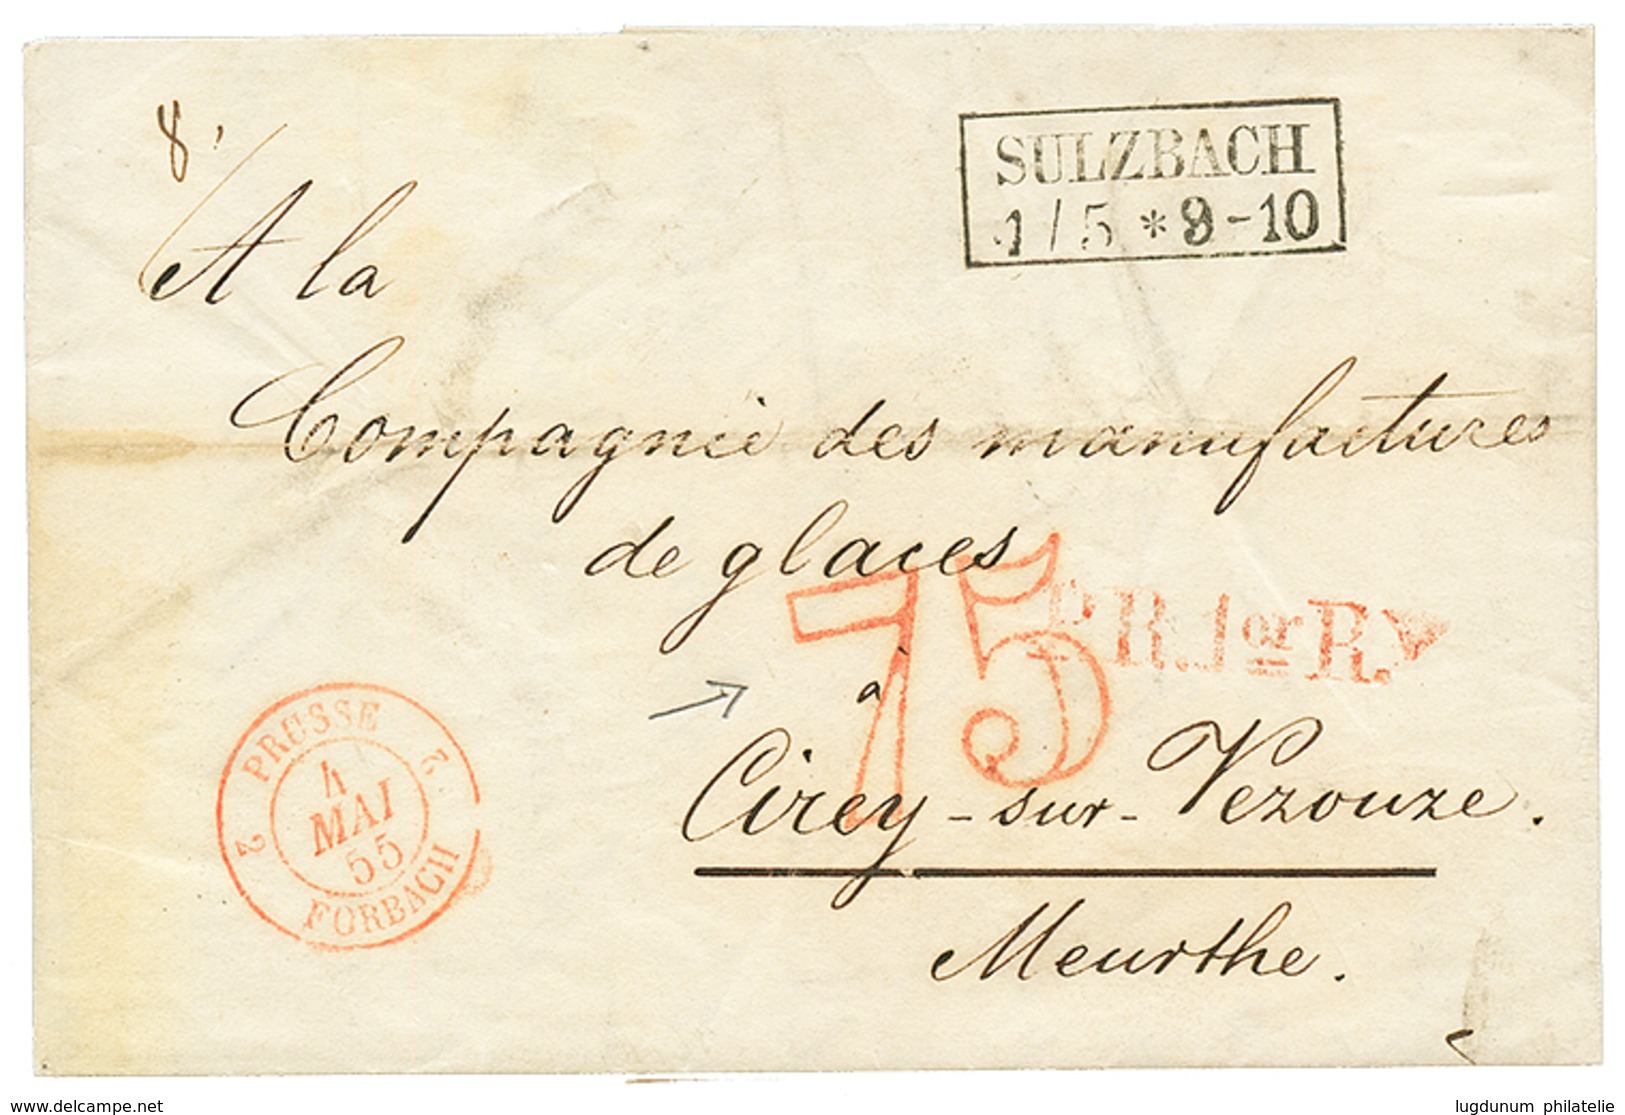 8
SULZBACH
4/5 * 9-10
A la
Compagnie des manufactures
de glaces
75
P.R. 1er R.
à
Cirey-sur-Vezouze.
Meurthe.
2 PRUSSE 2
4
MAI
55
FORBACH
www.delcampe.net
lugdunum philatelie